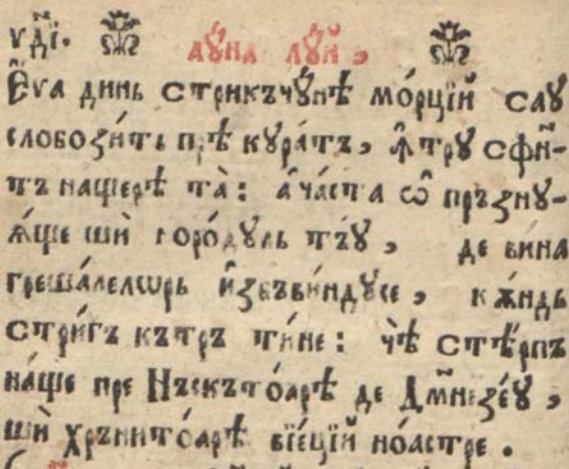 чдⷭ҇їи. а҆ꙋна лꙋ́й,
Є҆ꙋа динь стрикъчꙋ́нѣ мо́рцїй саꙋ
слобози́ть прѣ кꙋра́тъ, ꙟ҆трꙋ сфи҃н-
тъ нащерѣ та̀: а҆ча́ста ѡ҆ пръзнꙋ-
ѧ́ще шѝ норо́дꙋль тъ́ꙋ, де вина
греша́лелѡрь и҆збъви́ндꙋсе, кѫндь
стри́гъ кътръ ти́не: чѐ сте́рпъ
на́ще пре Нъскъто́арѣ де Дм҃незе́ꙋ,
шѝ хръните́арѣ вїе́цїй но́астре.